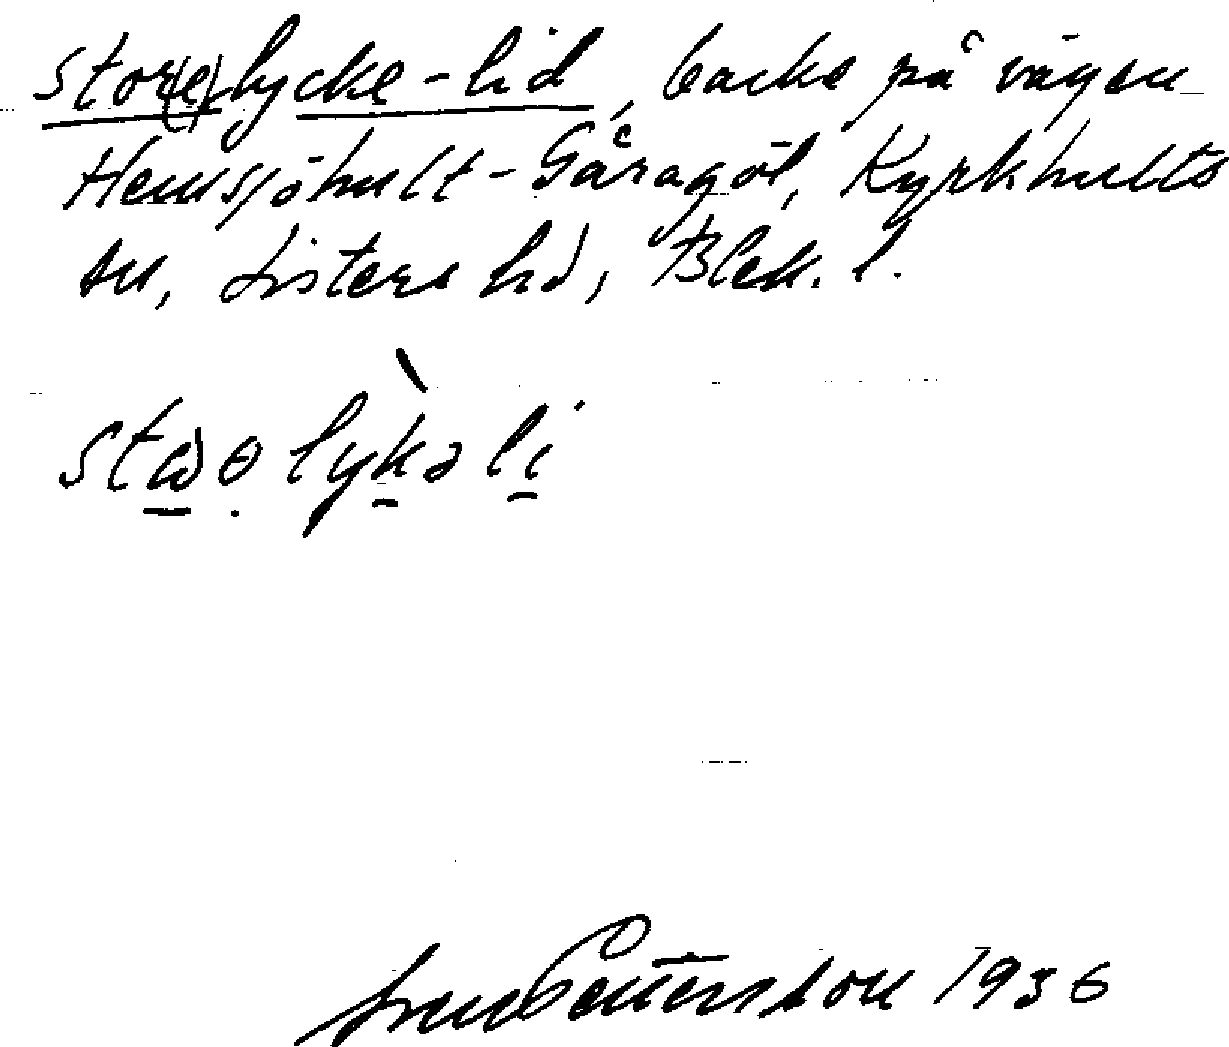 Stor(e)lycke-lid, backe på vägen
Hemsjöhult-Gåragöl, Kyrkhults
sn, Listers hd, Blek. l.
Pettersson 1936